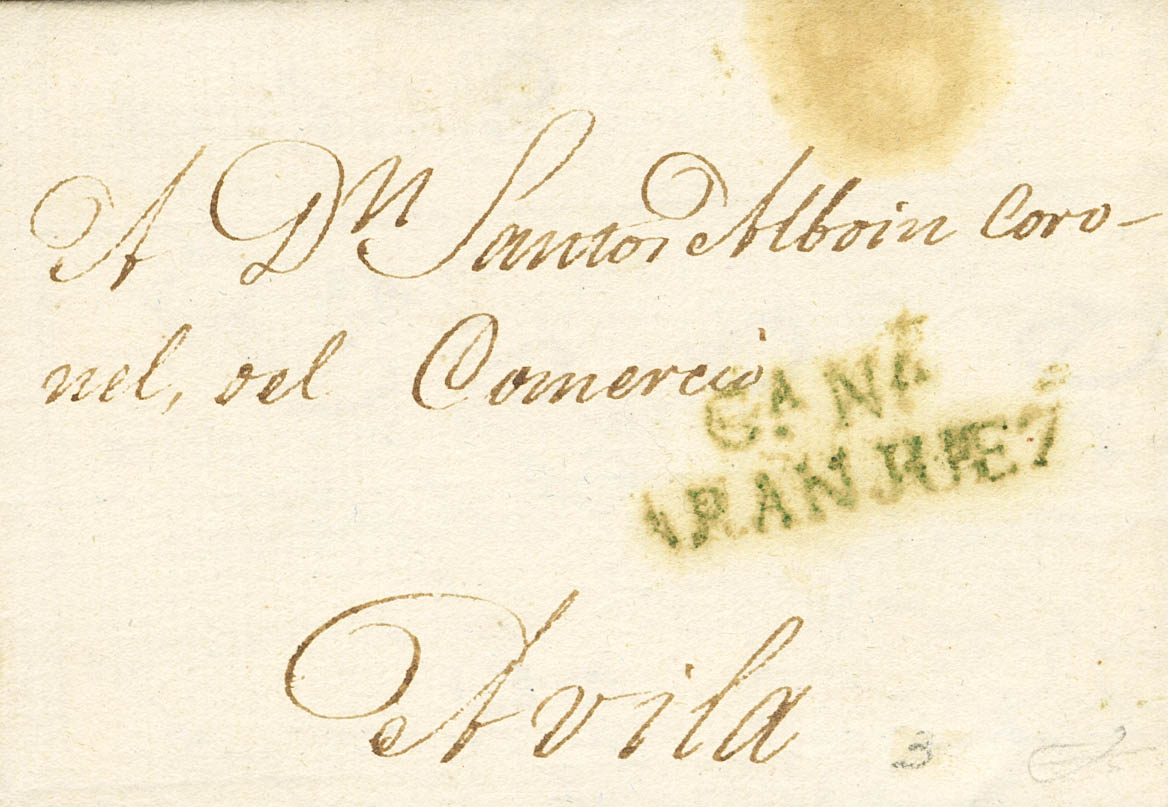 A Dn Santos Alboin Coro-
nel, del Comercio
CA NA
ARANJUEZ
Avila
3